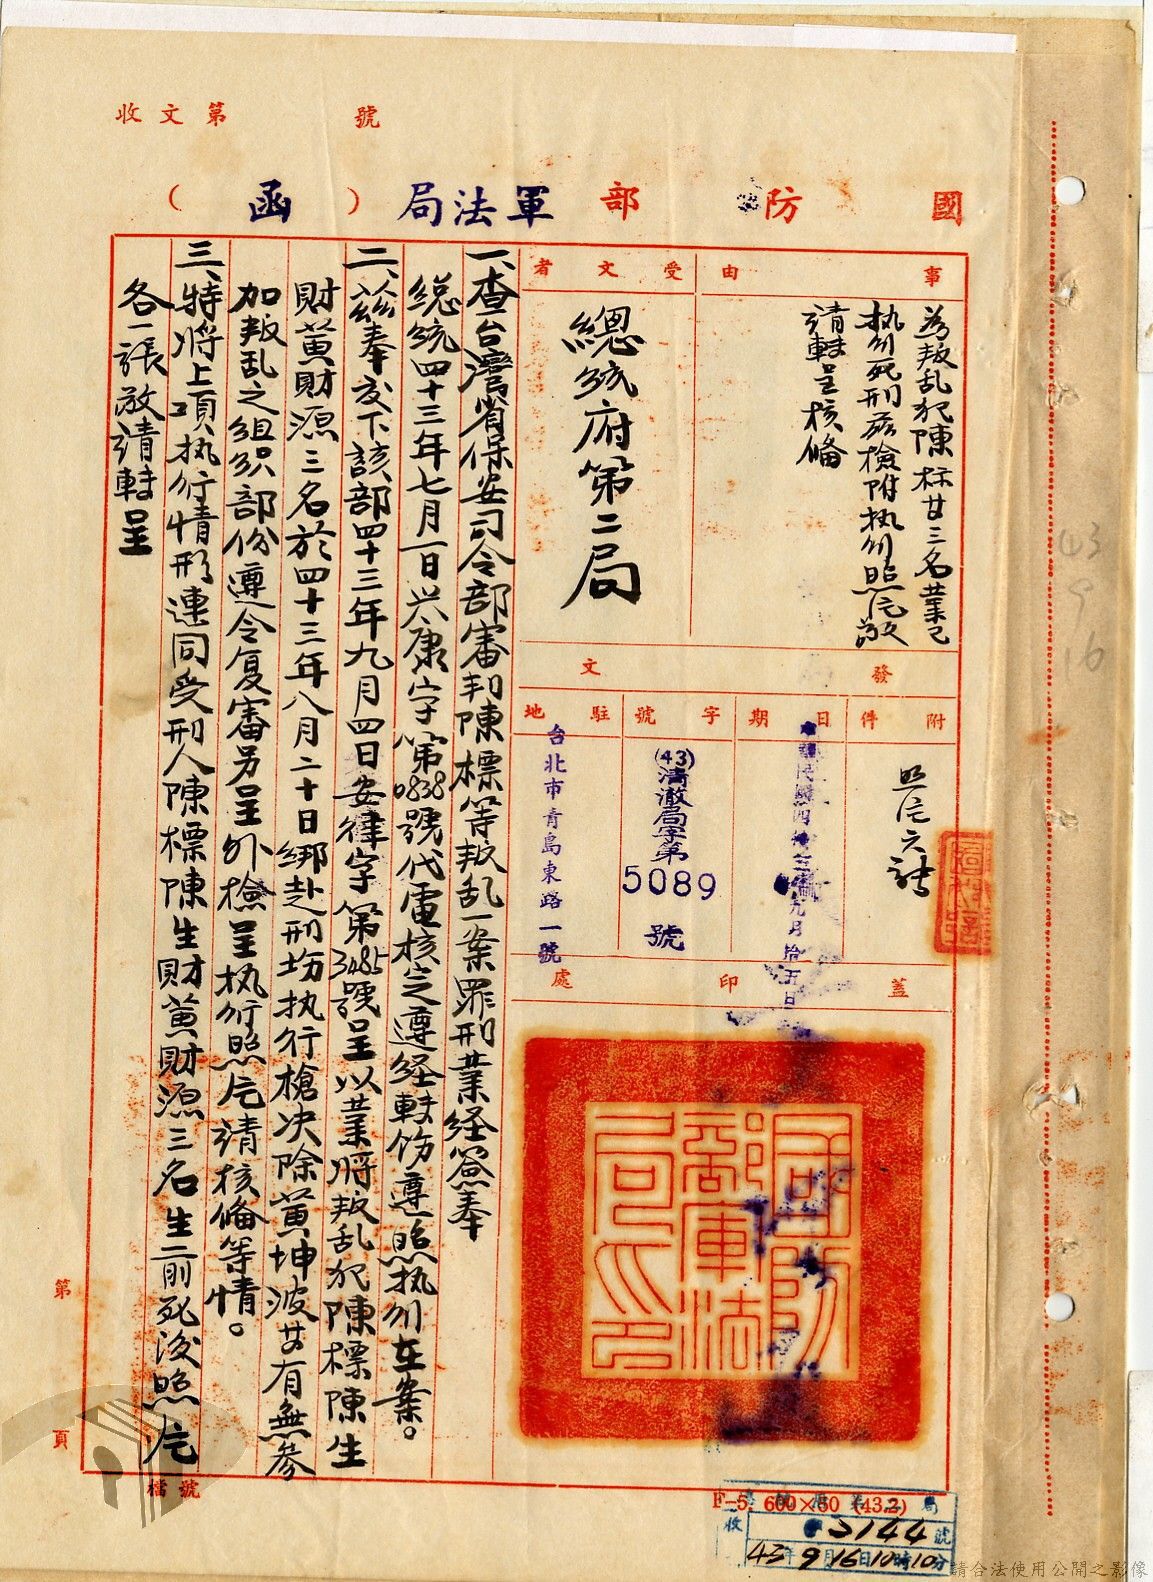 收文第 號
國防部軍法局(函)
事由
為叛乱犯陳标廿三名業已
执行死刑茲檢附执行照片敬
請轉呈核俻
受文者
總統府第二局
發文
附件
照片六張
日期
中華民國四十三年九月拾五日
字號
(43)清澈局字第
5089
號
駐地
台北市青島東路一號
蓋印處
國防部軍法局之印
一、查台灣省保安司令部審判陳標等叛乱一案罪刑業経簽奉
總統四十三年七月一日兴康字第0838號代電核定遵経轉饬遵照执行在案。
二、茲奉交下該部四十三年九月四日安律字第3485號呈以業將叛乱犯陳標陳生
財黄財源三名於四十三年八月二十日绑赴刑场执行槍决除黄坤波廿有無参
加叛乱之组织部份遵令复審另呈外檢呈执行照片請核俻等情。
三、特將上項执行情形連同受刑人陳標陳生財黄財源三名生前死後照片
各一張敬請轉呈
第 頁
檔號
F-5. 600×50 (43.2)
收
3144號
43年9月16日10時10分
43
9
16
請合法使用公開之影像